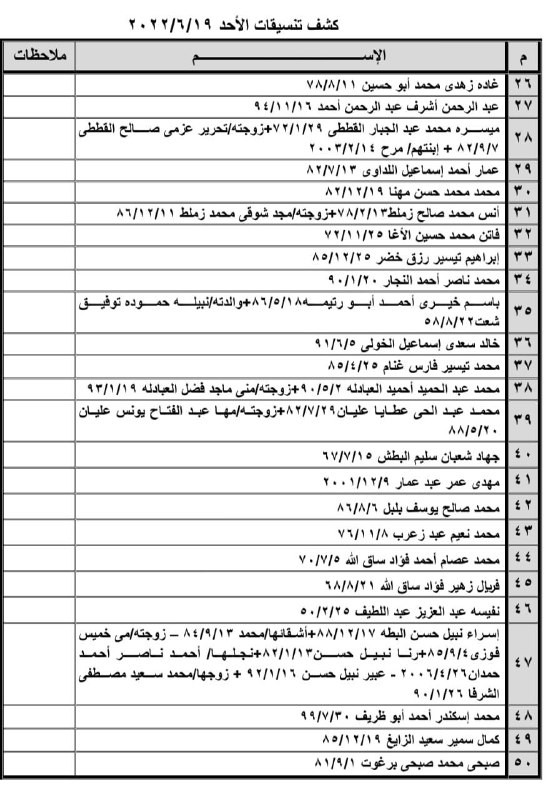 كشف تنسيقات الأحد ٢٠٢٢/٦/١٩
م الإســـــــم ملاحظات
٢٦ غاده زهدى محمد أبو حسين ٧٨/٨/١١
٢٧ عبد الرحمن أشرف عبد الرحمن أحمد ٩٤/١١/١٦
٢٨ ميسره محمد عبد الجبار القططى ٧٢/١/٢٩+زوجته/تحرير عزمى صالح القططى
٨٢/٩/٧ + إبنتهم/ مرح ٢٠٠٣/٢/١٤
٢٩ عمار أحمد إسماعيل اللداوى ٨٢/٧/١٣
٣٠ محمد محمد حسن مهنا ٨٢/١٢/١٩
٣١ أنس محمد صالح زملط٧٨/٢/١٣+زوجته/مجد شوقى محمد زملط ٨٦/١٢/١١
٣٢ فاتن محمد حسين الأغا ٧٢/١١/٢٥
٣٣ إبراهيم تيسير رزق خضر ٨٥/١٢/٢٥
٣٤ محمد ناصر أحمد النجار ٩٠/١/٢٠
٣٥ باسم خيرى أحمد أبو رتيمه٨٦/٥/١٨+والدته/نبيله حموده توفيق
شعت٥٨/٨/٢٢
٣٦ خالد سعدى إسماعيل الخولى ٩١/٦/٥
٣٧ محمد تيسير فارس غنام ٨٥/٤/٢٥
٣٨ محمد عبد الحميد أحميد العبادله ٩٠/٥/٢+زوجته/منى ماجد فضل العبادله ٩٣/١/١٩
٣٩ محمد عبد الحى عطايا عليان٨٢/٧/٢٩+زوجته/مها عبد الفتاح يونس عليان
٨٨/٥/٢٠
٤٠ جهاد شعبان سليم البطش ٦٧/٧/١٥
٤١ مهدى عمر عبد عمار ٢٠٠١/١٢/٩
٤٢ محمد صالح يوسف بلبل ٨٦/٨/٦
٤٣ محمد نعيم عبد زعرب ٧٦/١١/٨
٤٤ محمد عصام أحمد فؤاد ساق الله ٧٠/٧/٥
٤٥ فريال زهير فؤاد ساق الله ٦٨/٨/٢١
٤٦ نفيسه عبد العزيز عبد اللطيف ٥٠/٢/٢٥
٤٧ إسراء نبيل حسن البطه ٨٨/١٢/١٧+أشقائها/محمد ٨٤/٩/١٣ – زوجته/مى خميس
فوزى٨٥/٩/٤+رنا نبيل حسن٨٢/١/١٣+نجلها/ أحمد ناصر أحمد
حمدان٢٠٠٦/٤/٢٦ - عبير نبيل حسن ٩٢/١/١٦ + زوجها/محمد سعيد مصطفى
الشرفا ٩٠/١/٢٦
٤٨ محمد إسكندر أحمد أبو ظريف ٩٩/٧/٣٠
٤٩ كمال سمير سعيد الزايغ ٨٥/١٢/١٩
٥٠ صبحى محمد صبحى برغوت ٨١/٩/١